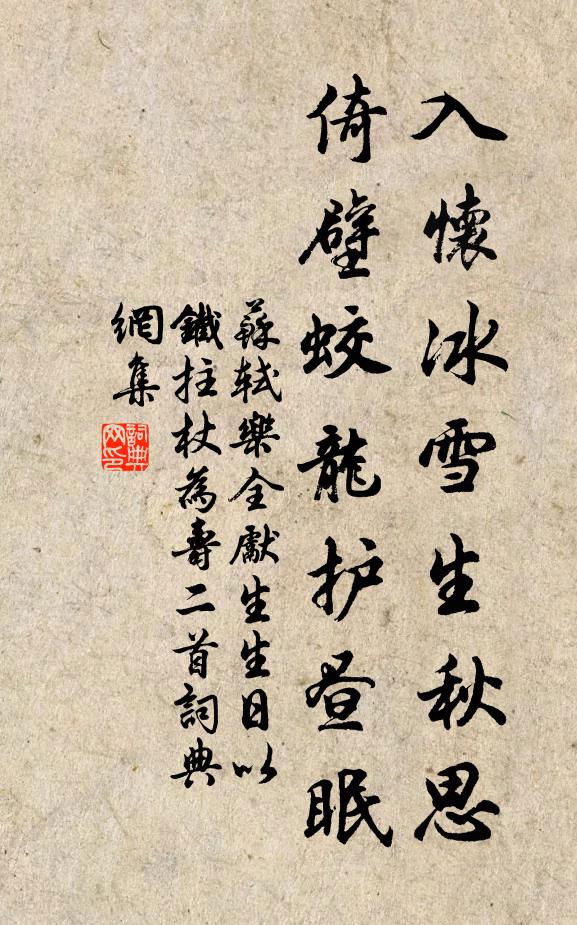 入懷冰雪生秋思
倚壁蛟龍护昼眠
蘇軾樂全獻生生日以
鐵拄杖為壽二首詞典
網集
詞典
网印